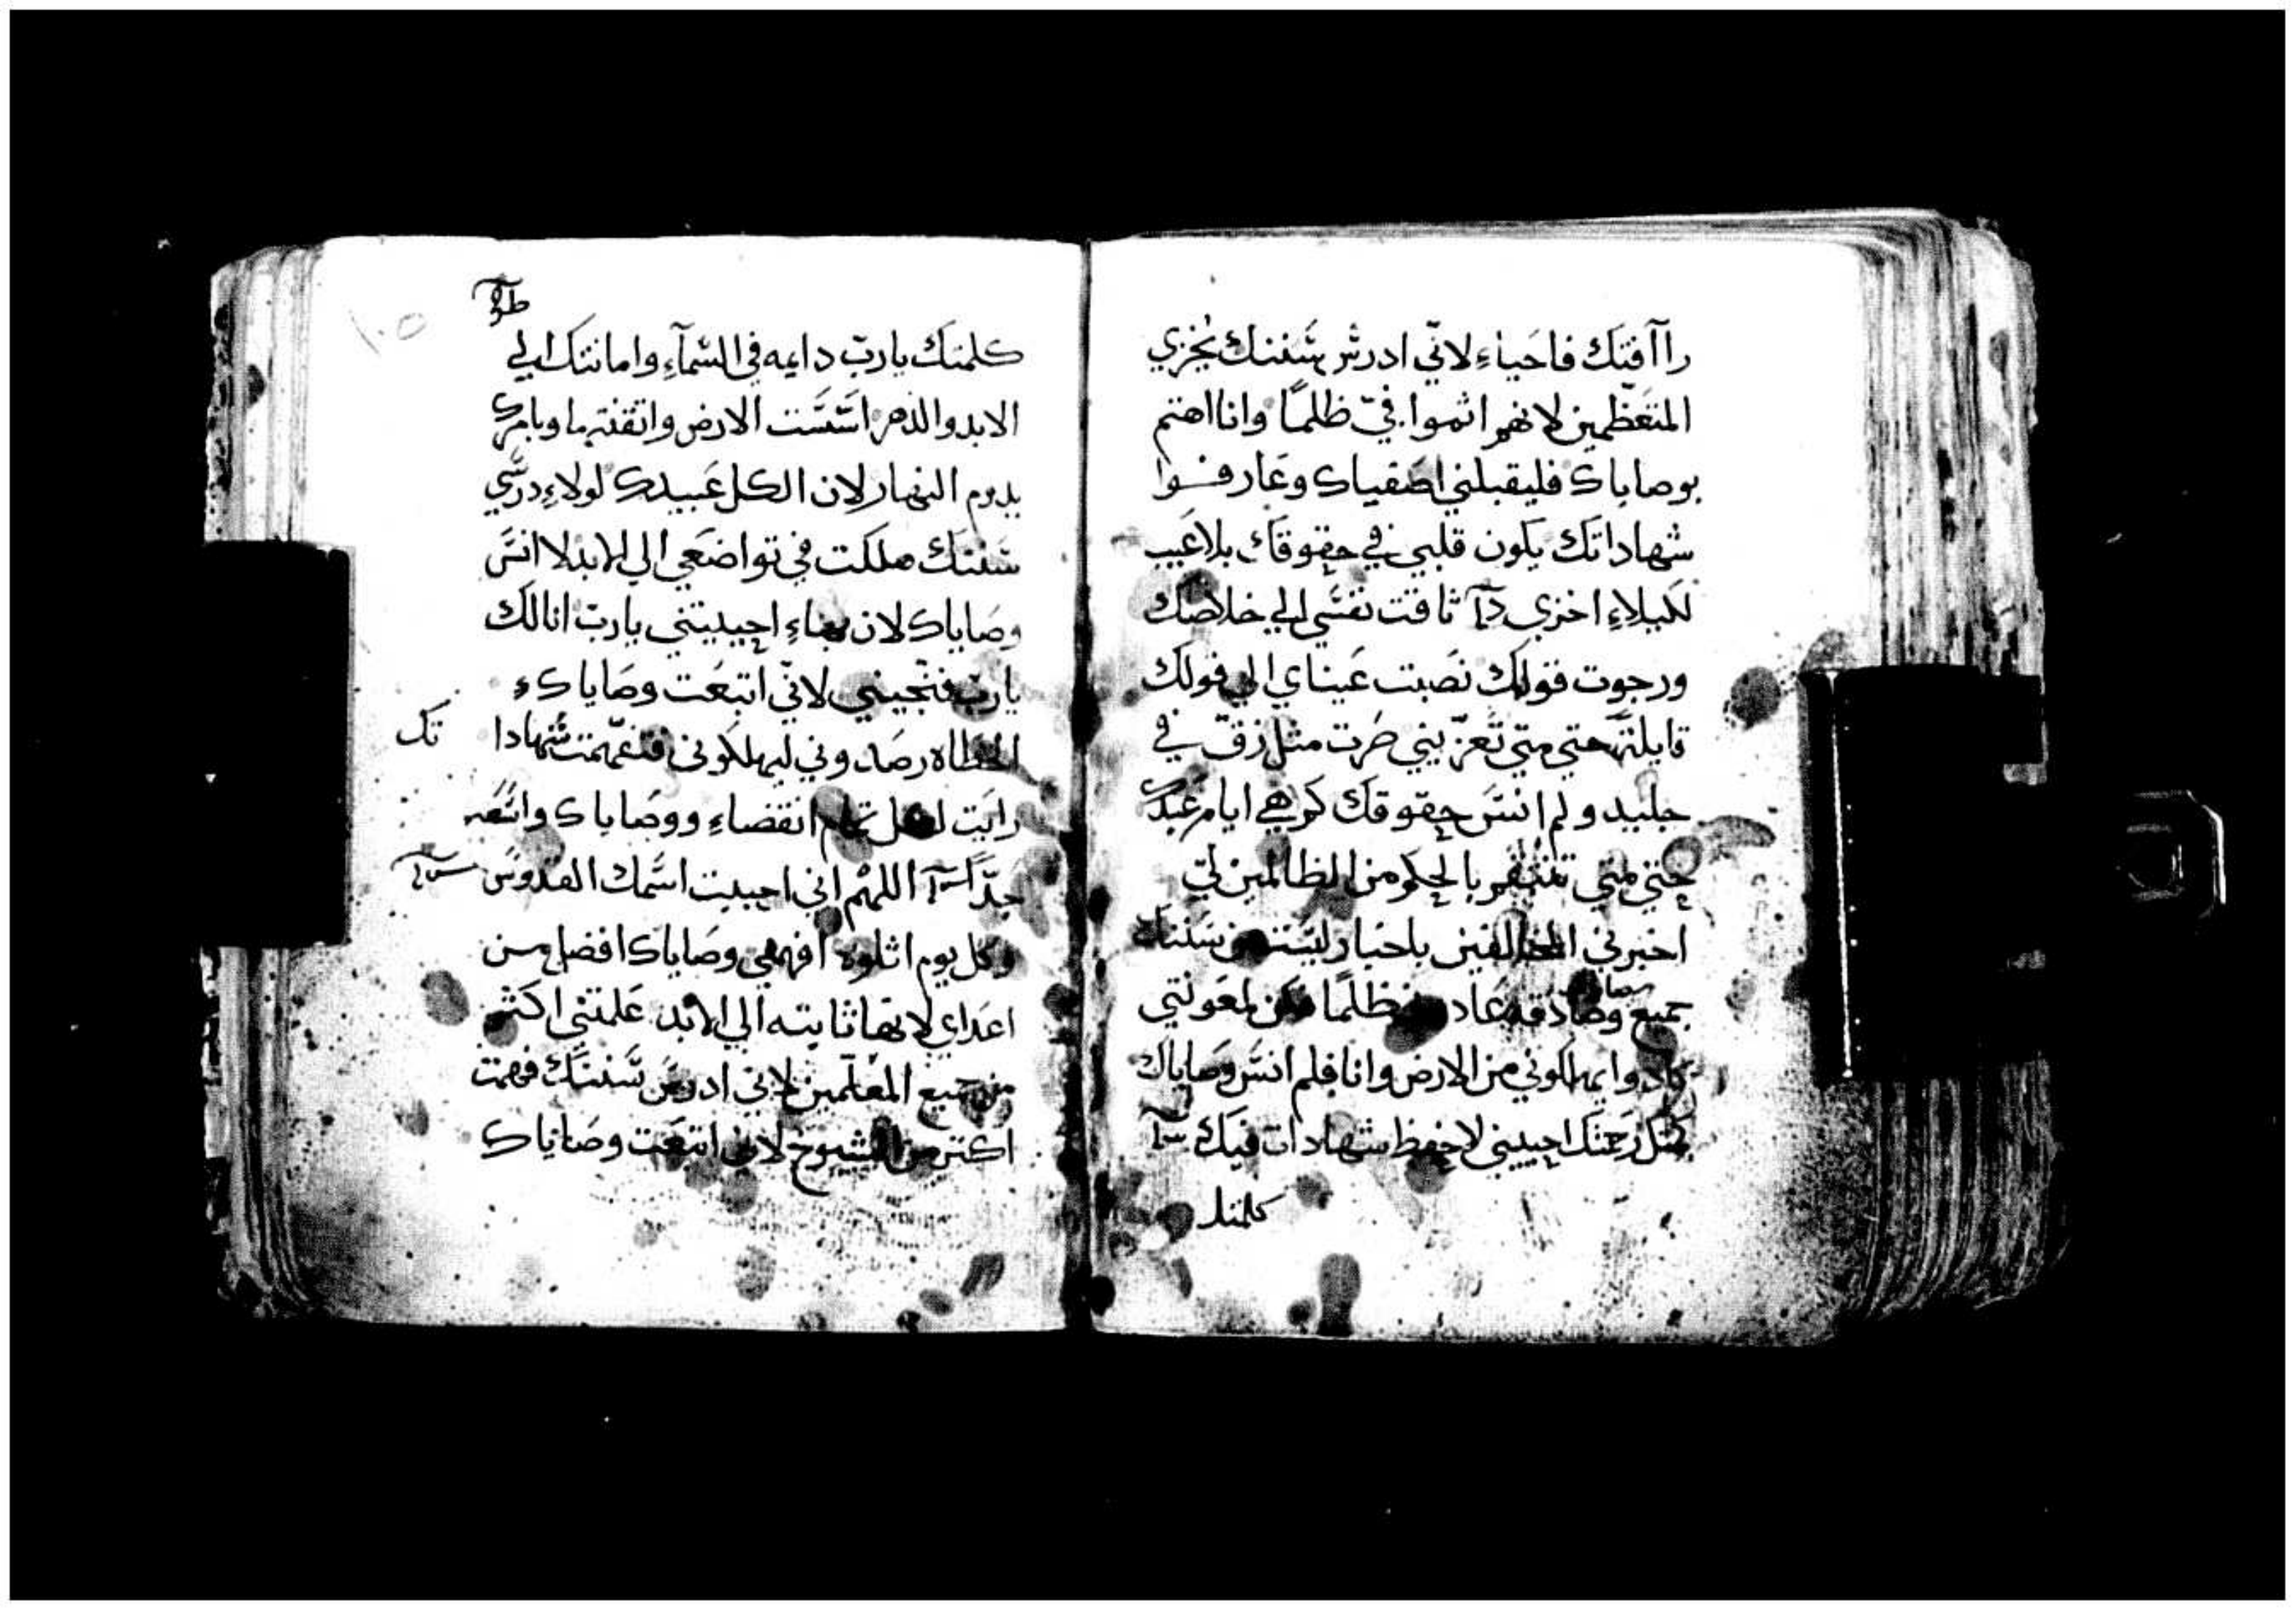 راآفتك فاحياء لاني ادرش سننك يخزي
المتعظمين لانهم اثموا فيّ ظلمًا وانا اهتم
بوصاياك فليقبلني اصقياك وعارفوا
شهاداتك يكون قلبي في حقوقك بلا عيب
لكيلاء اخزي تاقت نفسي الي خلاصك
ورجوت قولك نصبت عيناي الي قولك
قايلة حتي متي تعزيني صرت مثل زق في
جليد ولم انس حقوقك كم هي ايام عبدك
حتي متي تنتقم بالحكم من الظالمين لي
اخبرني المخالفين باخبار ليست من سننك
جميع وصاياك صادقه ظلمًا كن لمعونتي
كادوا يهلكوني من الارض وانا فلم انس وصاياك
كمثل رحمتك احييني لاحفظ شهادات فيك
كلمتك
كلمتك يا رب دايمه في السمآء وامانتك الي
الابد والدهر اسست الارض واتقنتها وبامرك
يدوم النهار لان الكل عبيدك لولاء درسي
سننك هلكت في تواضعي الي الابد لا انس
وصاياك لان بهاء احييتني يا رب انا لك
يا رب فنجيني لاني اتبعت وصاياك
الخطاه رصدوني ليهلكوني فتفهمت شهادا تك
رايت لكل تمام انقضاء ووصاياك واسعه
جدًا اللهم اني احببت اسمك القدوس
وكل يوم اتلوه افهمني وصاياك افضل من
اعداي لانها ثابته الي الابد علمتني اكثر
من جميع المعلمين لاني ادرس سننك فهمت
اكتر من الشيوخ لاني اتبعت وصاياك
١٠٥